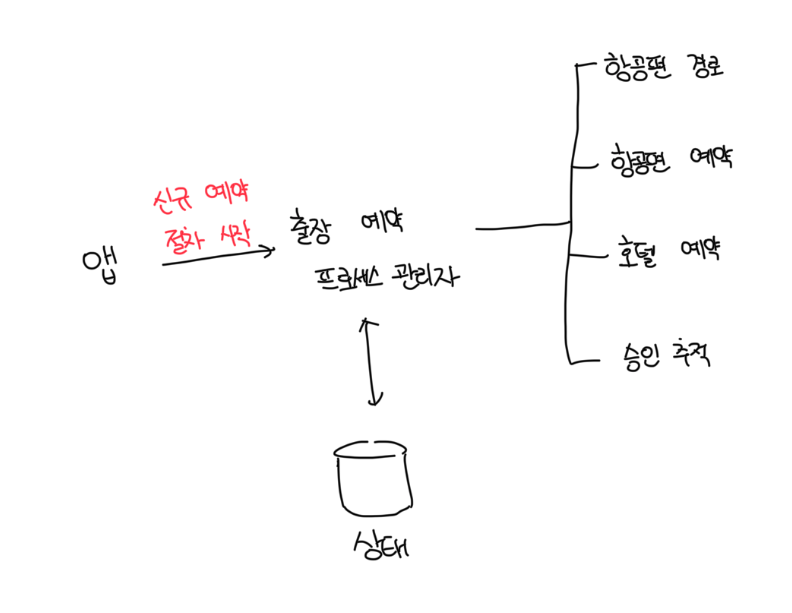 앱
신규 예약
절차 시작
출장 예약
프로세스 관리자
상태
항공편 경로
항공편 예약
호텔 예약
승인 추적